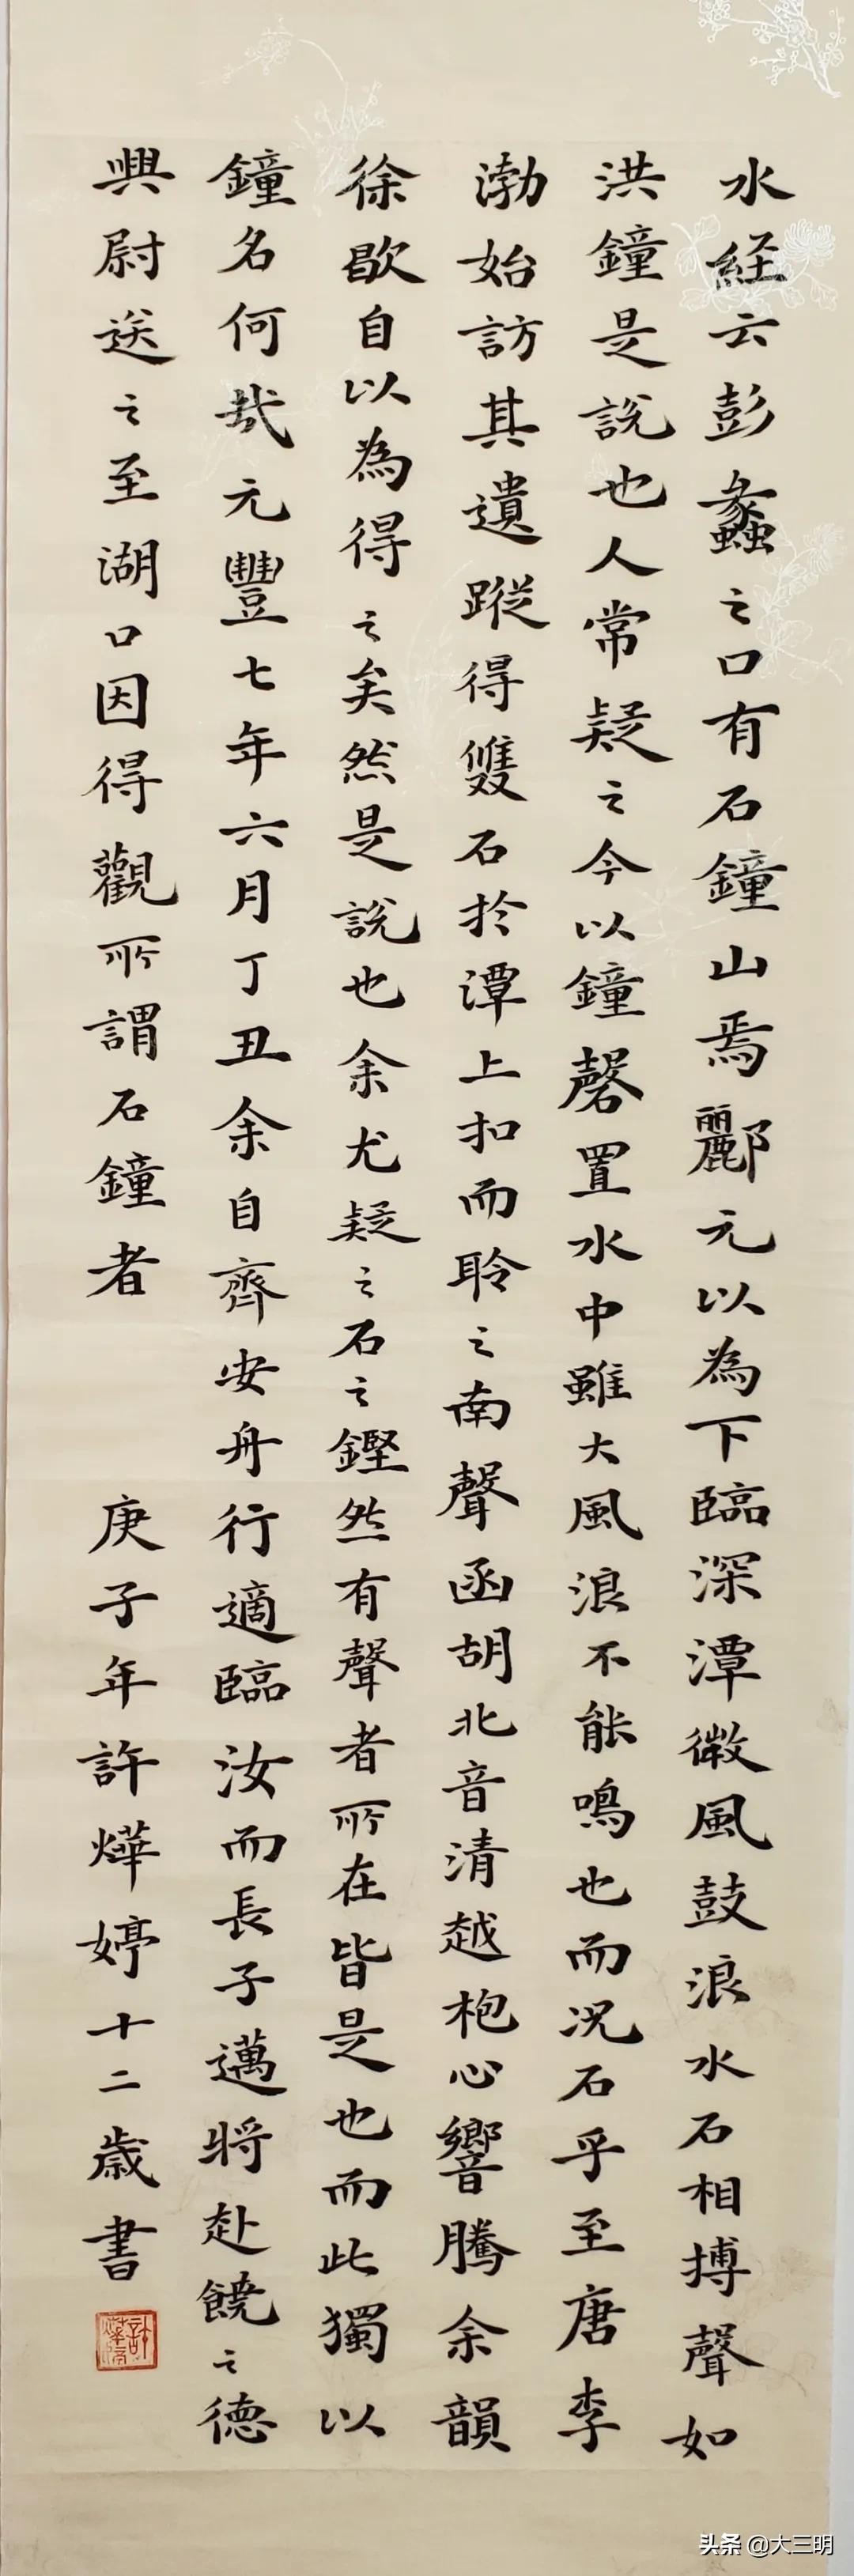 水経云彭蠡之口有石鐘山焉酈元以為下臨深潭微風鼓浪水石相搏聲如
洪鐘是説也人常疑之今以鐘磬置水中雖大風浪不能鳴也而况石乎至唐李
渤始訪其遺蹤得雙石於潭上扣而聆之南聲函胡北音清越枹心響騰余韻
徐歇自以為得之矣然是説也余尤疑之石之鏗然有聲者所在皆是也而此獨以
鐘名何哉元豐七年六月丁丑余自齊安舟行適臨汝而長子邁將赴饒之德
興尉送之至湖口因得觀所謂石鐘者
庚子年許燁婷十二歲書
頭条 @大三明